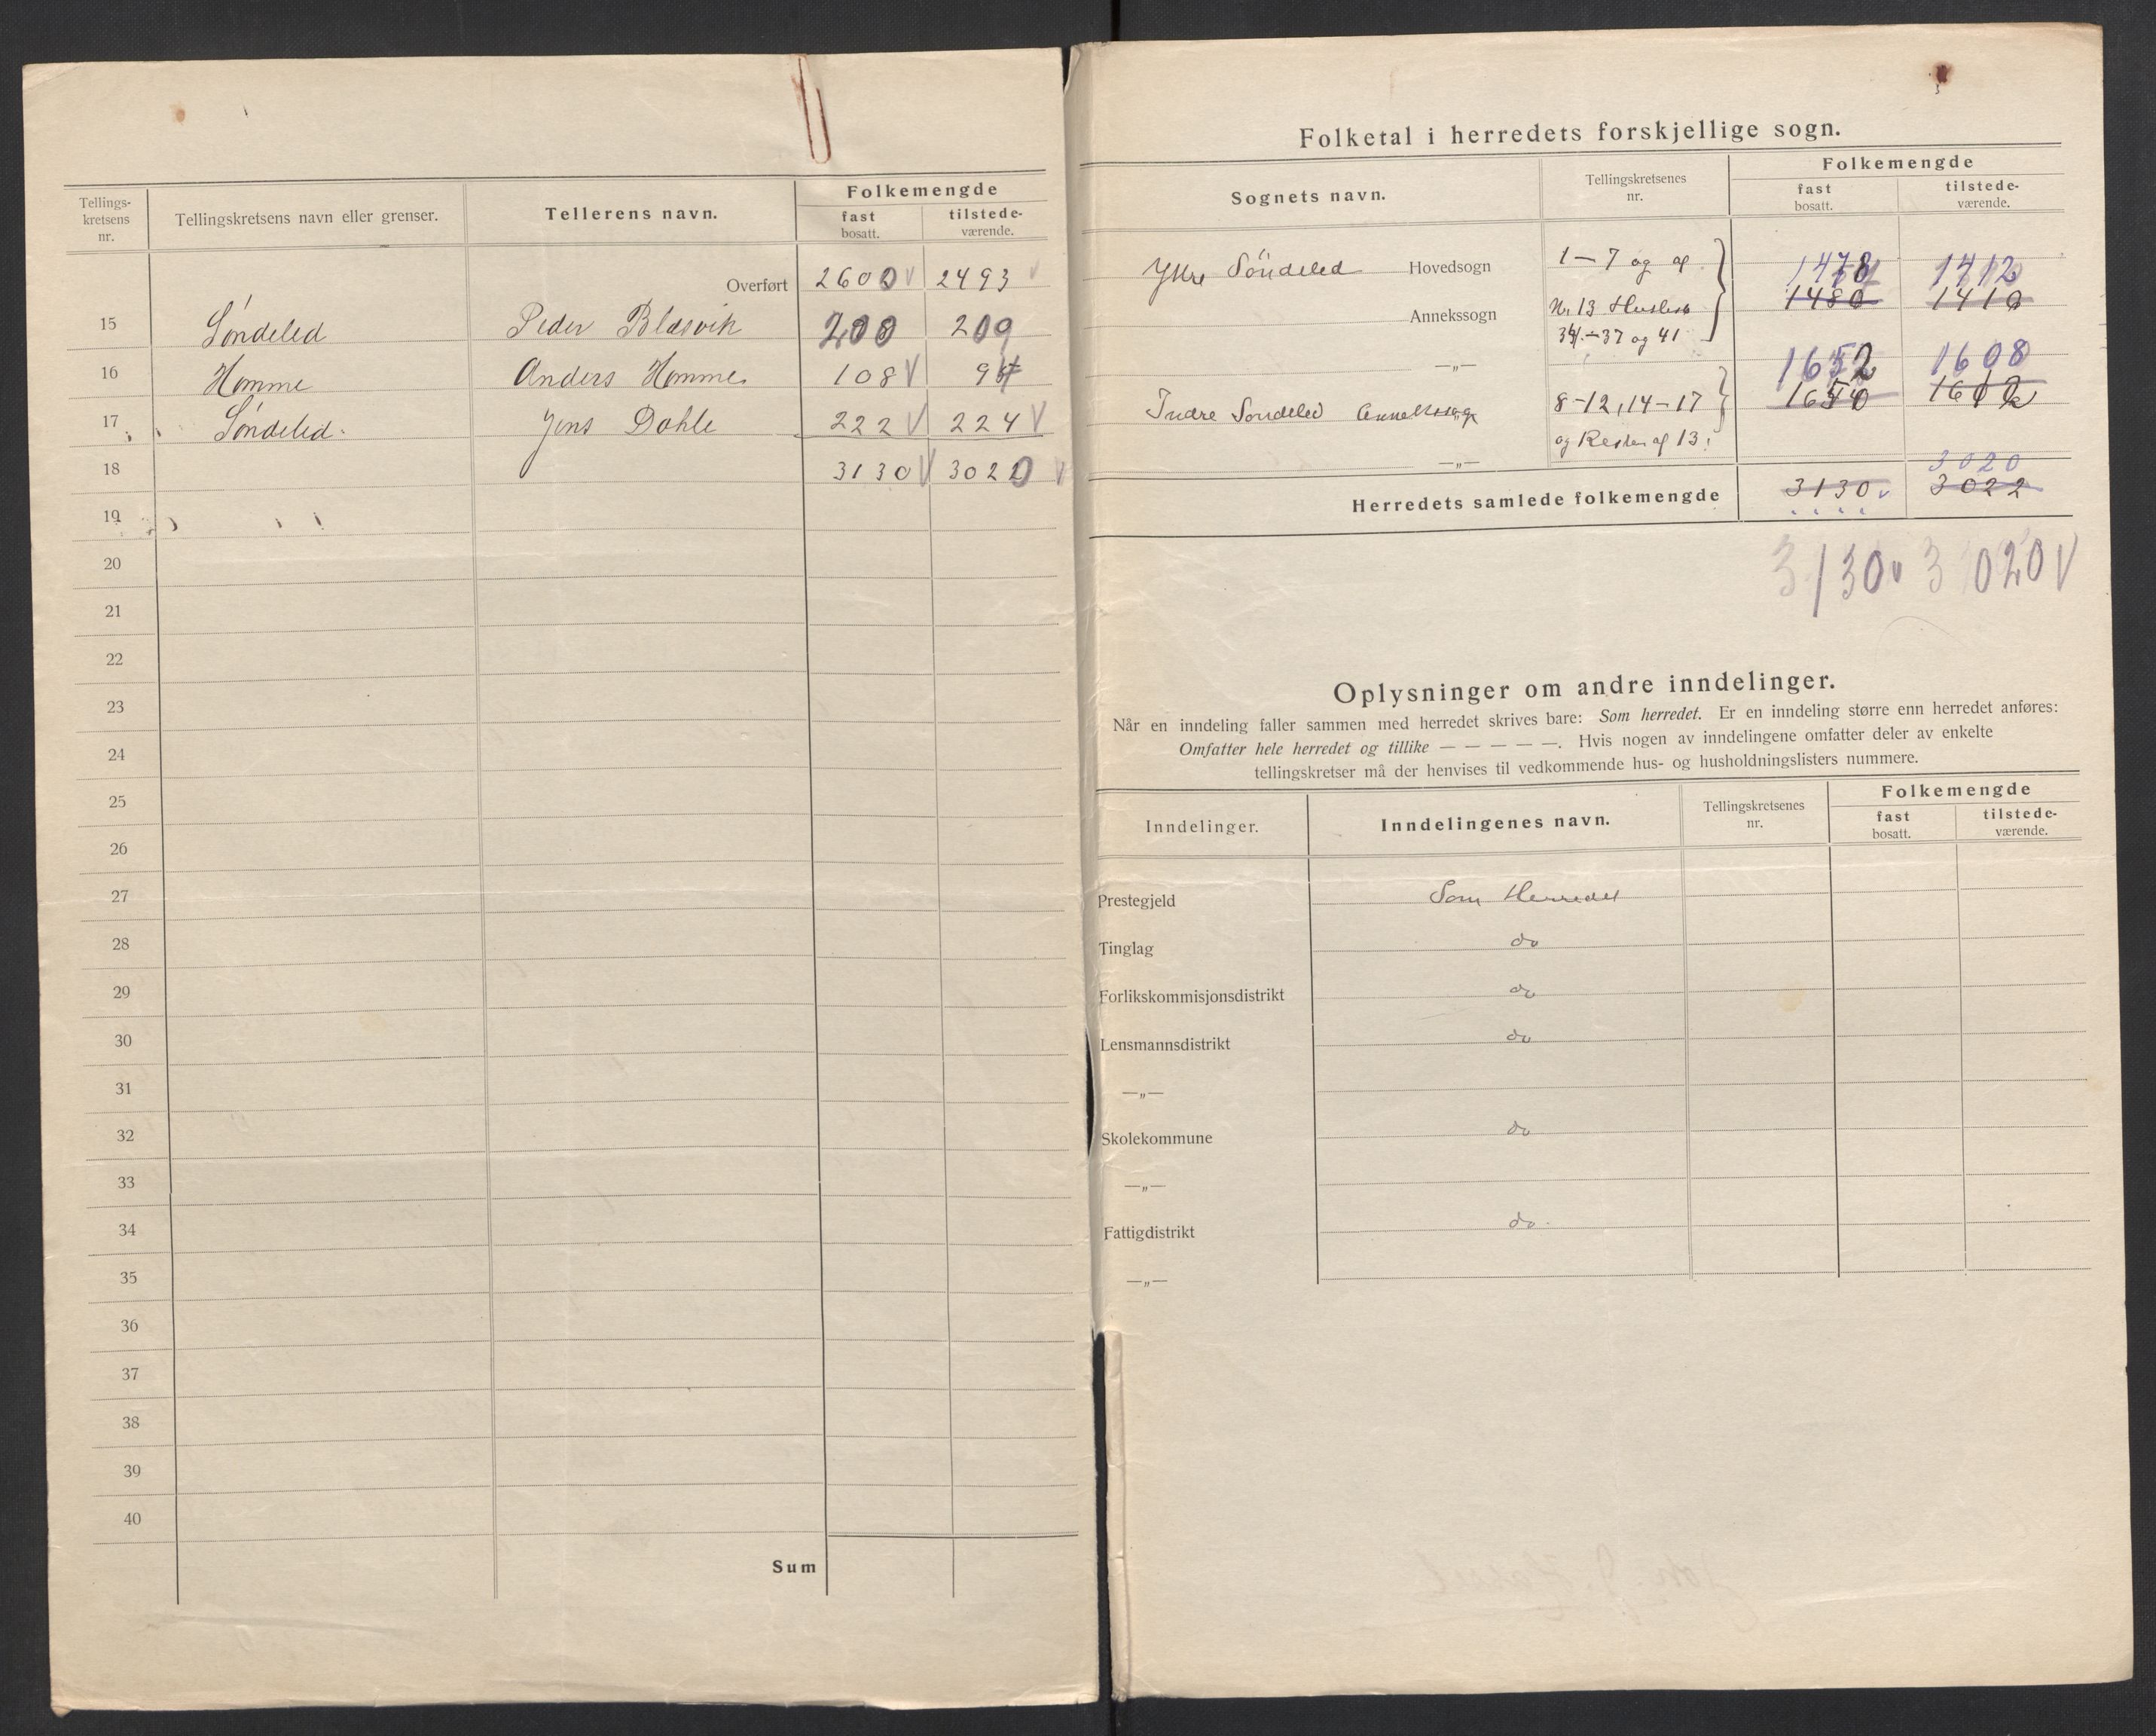 Tellings-
kretsens
nr.
Tellingskretsens navn eller grenser.
Tellerens navn.
Folkemengde
fast
bosatt.
tilstede-
værende.
Overført 2600 V 2493 V
15 Søndeled Peder Blasvik 200 209
16 Homme Anders Homme 108 V 94
17 Søndeled. Jens Dahle 222 V 224 V
18 3130 V 3020 V
19
20
21
22
23
24
25
26
27
28
29
30
31
32
33
34
35
36
37
38
39
40
Sum
Folketal i herredets forskjellige sogn.
Sognets navn.
Tellingskretsenes
nr.
Folkemengde
fast
bosatt.
tilstede-
værende.
Ytre Söndeled Hovedsogn 1–7 og af 1478 1412
Annekssogn Nr. 13 1480 1410
34–37 og 41
—„— 1652 1608
Indre Sondeled Annekssogn 8–12, 14–17 1650
og Resten af 13.
—„—
3020
Herredets samlede folkemengde 3130 V 3022
3130 V 3020 V
Oplysninger om andre inndelinger.
Når en inndeling faller sammen med herredet skrives bare: Som herredet. Er en inndeling større enn herredet anføres:
Omfatter hele herredet og tillike — — — — —. Hvis nogen av inndelingene omfatter deler av enkelte
tellingskretser må der henvises til vedkommende hus- og husholdningslisters nummere.
Inndelinger.
Inndelingenes navn.
Tellingskretsenes
nr.
Folkemengde
fast
bosatt.
tilstede-
værende.
Prestegjeld Som Herredet
Tinglag do
Forlikskommisjonsdistrikt do
Lensmannsdistrikt do
—„—
Skolekommune do
—„—
Fattigdistrikt do.
—„—